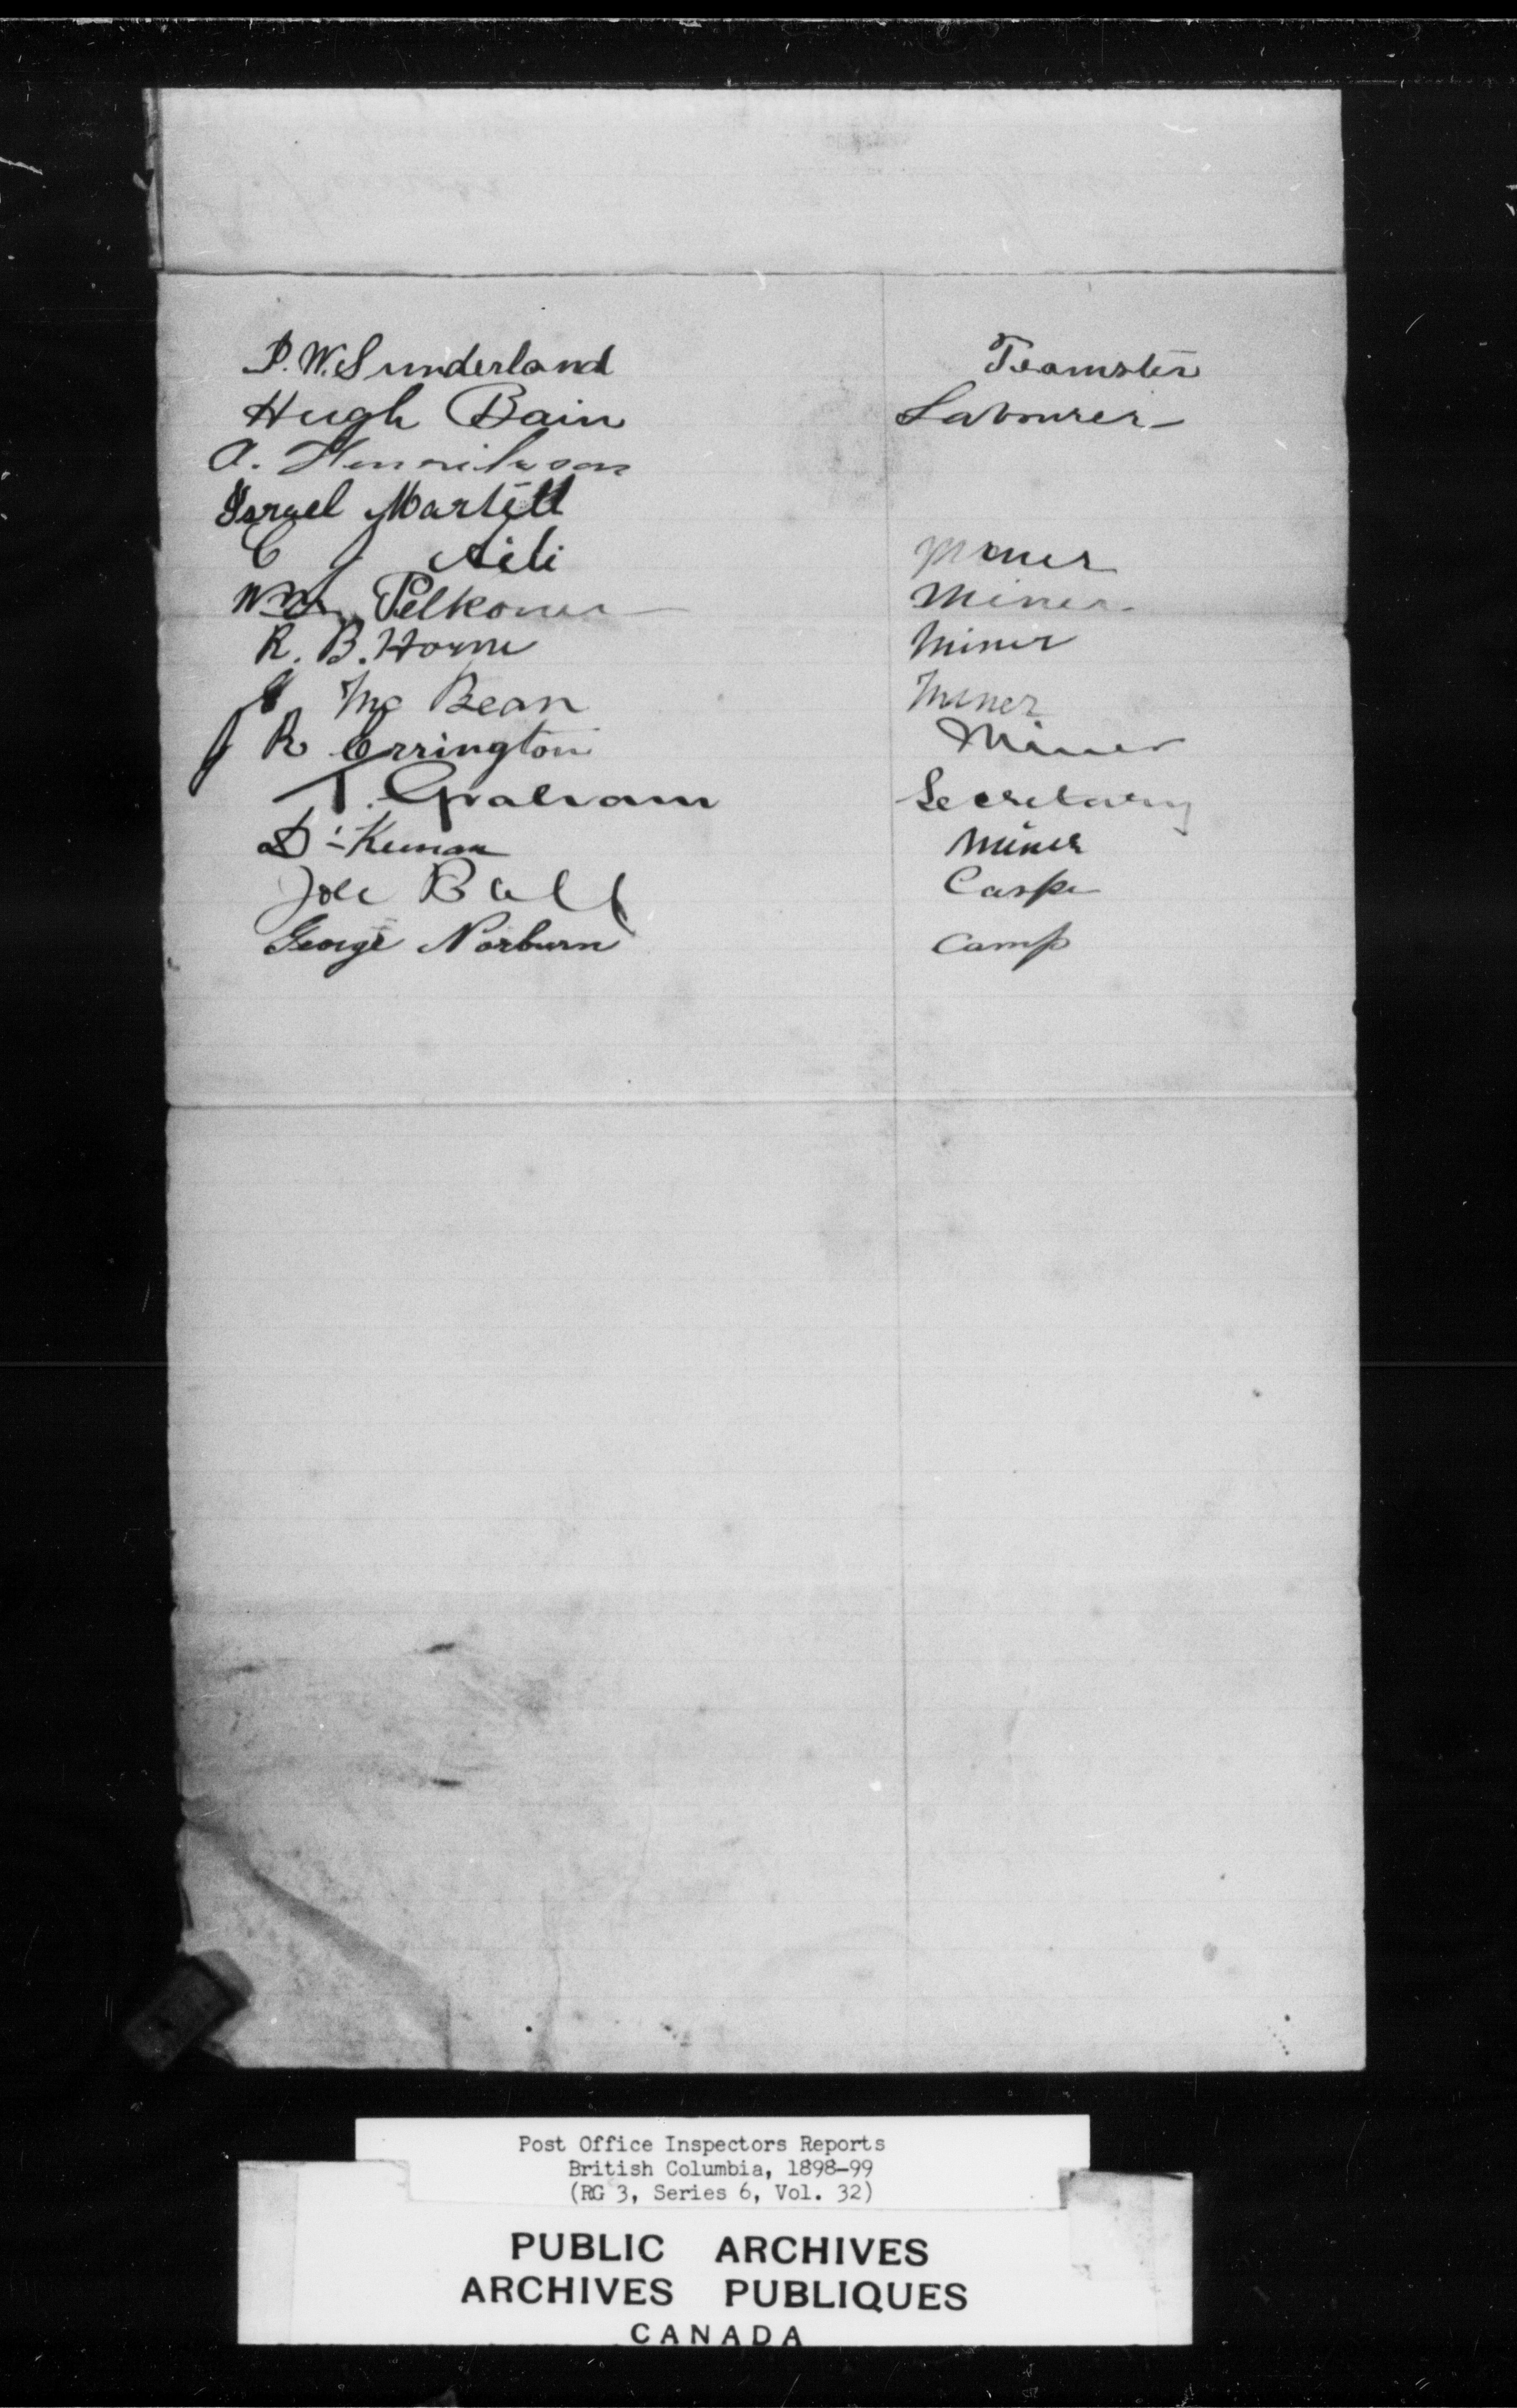 P. W. Sunderland Teamster
Hugh Bain Labourer
A. Henrikson
Israel Martell
C J Aili Miner
Wm Pelkonen Miner
R. B. Horne Miner
J Mc Bean Miner
J R Errington Miner
T. Graham Secretary
D. Miner
Joe Ball
George Norburn Camp
Post Office Inspectors Reports
British Columbia, 1898-99
(RG 3, Series 6, Vol. 32)
PUBLIC ARCHIVES
ARCHIVES PUBLIQUES
CANADA